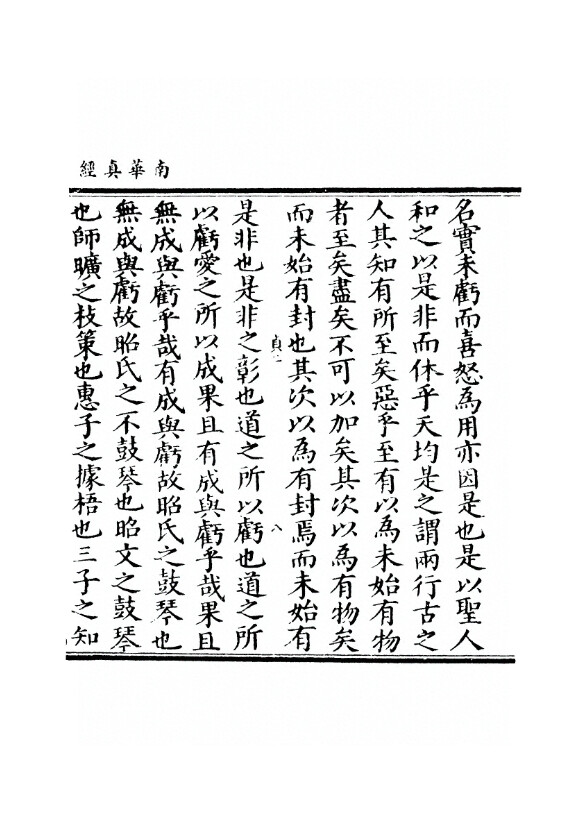 南華真經
名實未虧而喜怒為用亦因是也是以聖人
和之以是非而休乎天均是之謂兩行古之
人其知有所至矣惡乎至有以為未始有物
者至矣盡矣不可以加矣其次以為有物矣
而未始有封也其次以為有封焉而未始有
八
是非也是非之彰也道之所以虧也道之所
以虧愛之所以成果且有成與虧乎哉果且
無成與虧乎哉有成與虧故昭氏之鼓琴也
無成與虧故昭氏之不鼓琴也昭文之鼓琴
也師曠之枝策也惠子之據梧也三子之知